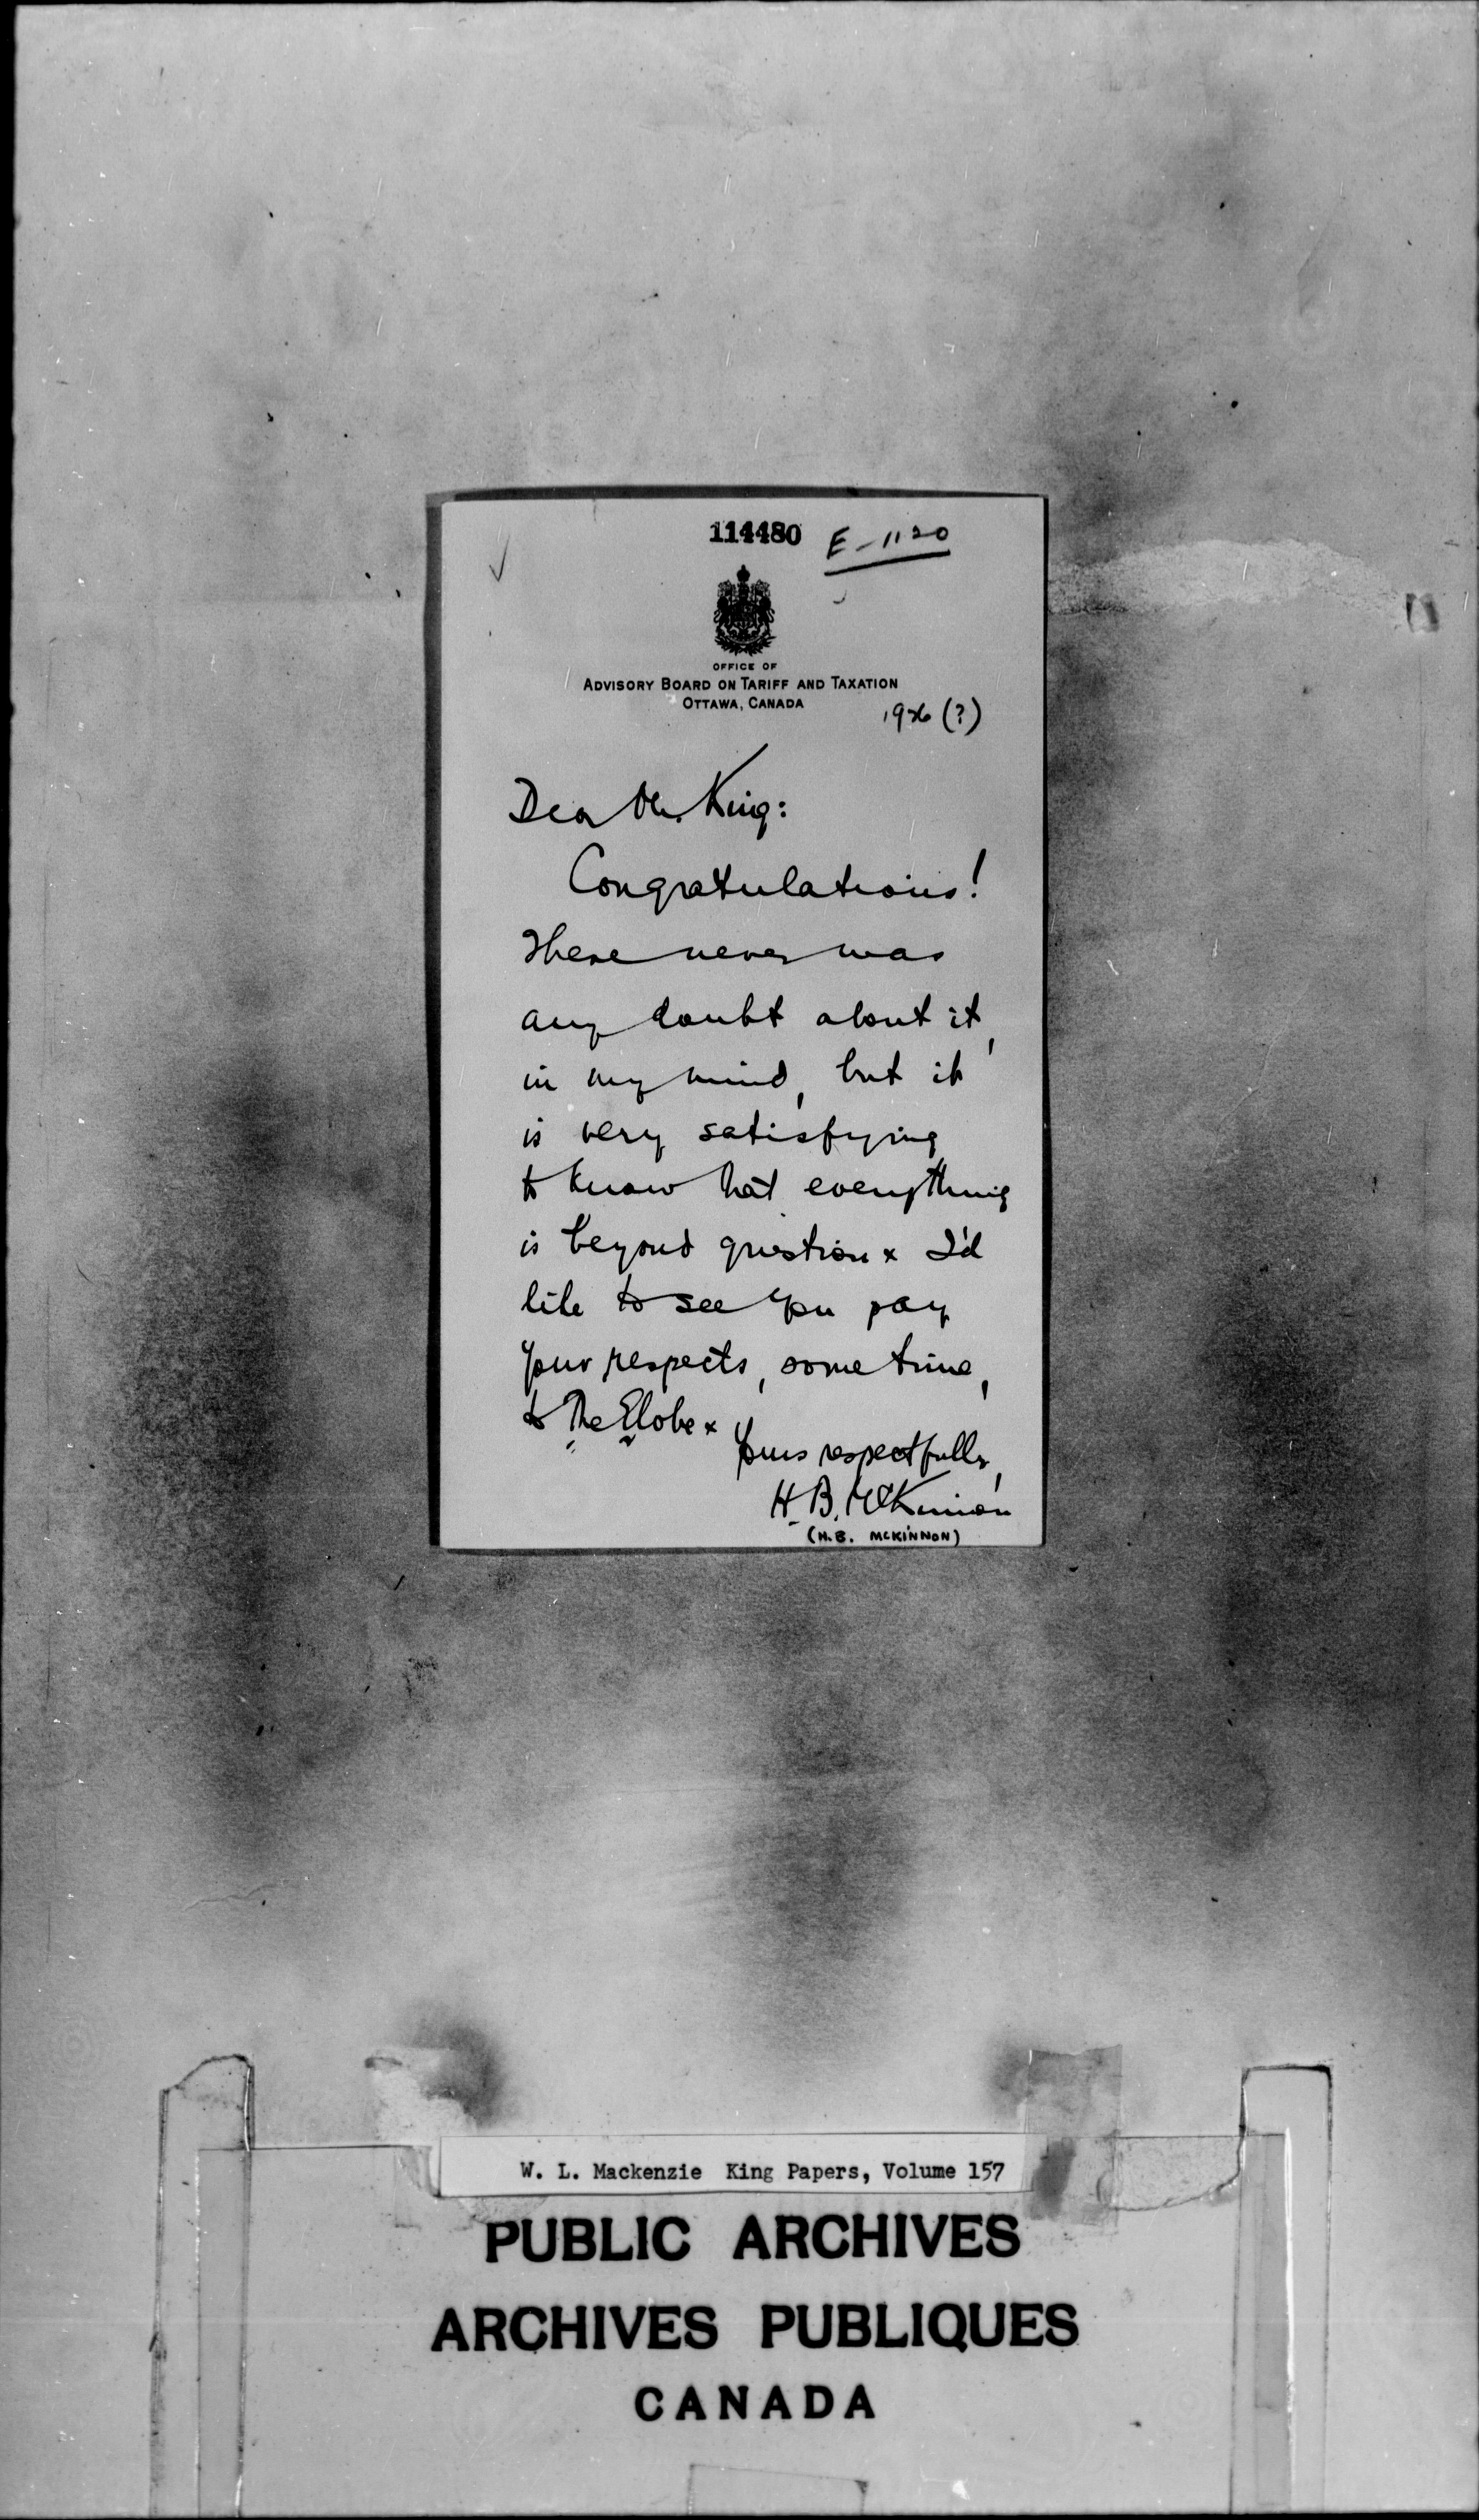 114480 E-1120
OFFICE OF
ADVISORY BOARD ON TARIFF AND TAXATION
OTTAWA, CANADA
1926 (?)
Dear Mr. King:
Congratulations!
There never was
any doubt about it,
in my mind, but it
is very satisfying
to know that everything
is beyond question x I'd
like to see you pay
your respects, some time,
to The Globe x
Yours respectfully,
H. B. McKinnon
(H.B. MCKINNON)
W. L. Mackenzie King Papers, Volume 157
PUBLIC ARCHIVES
ARCHIVES PUBLIQUES
CANADA